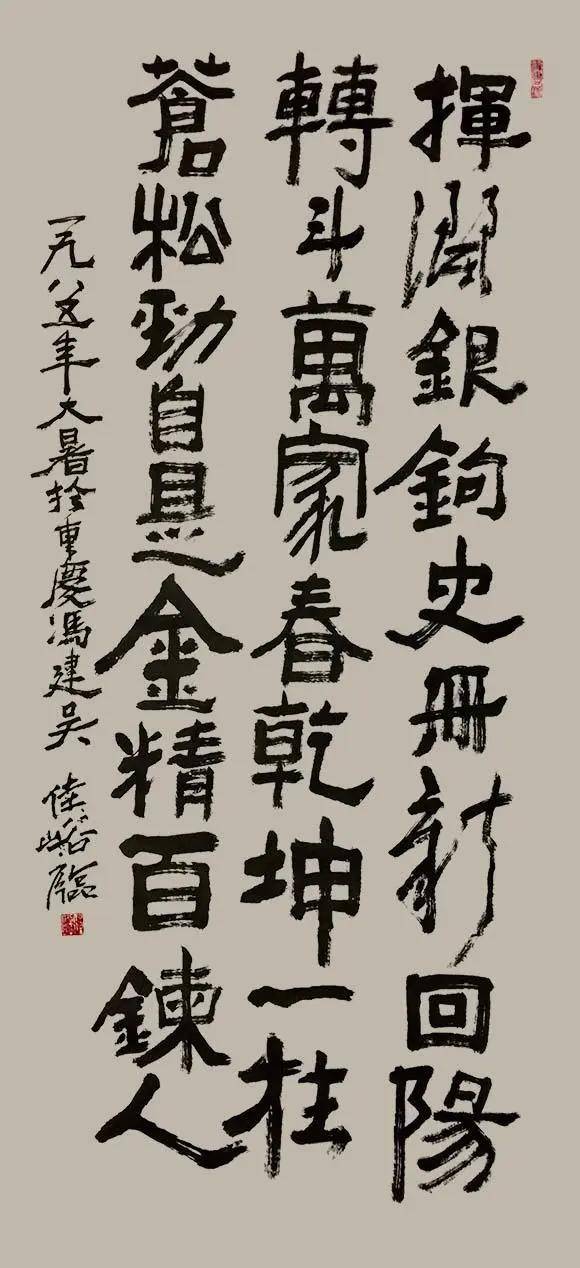 揮銀鉤史冊新回陽
轉斗萬家春乾坤一柱
蒼松勁自是金精百鍊人
一九八五年大暑於重慶馮建吴 佳峪臨